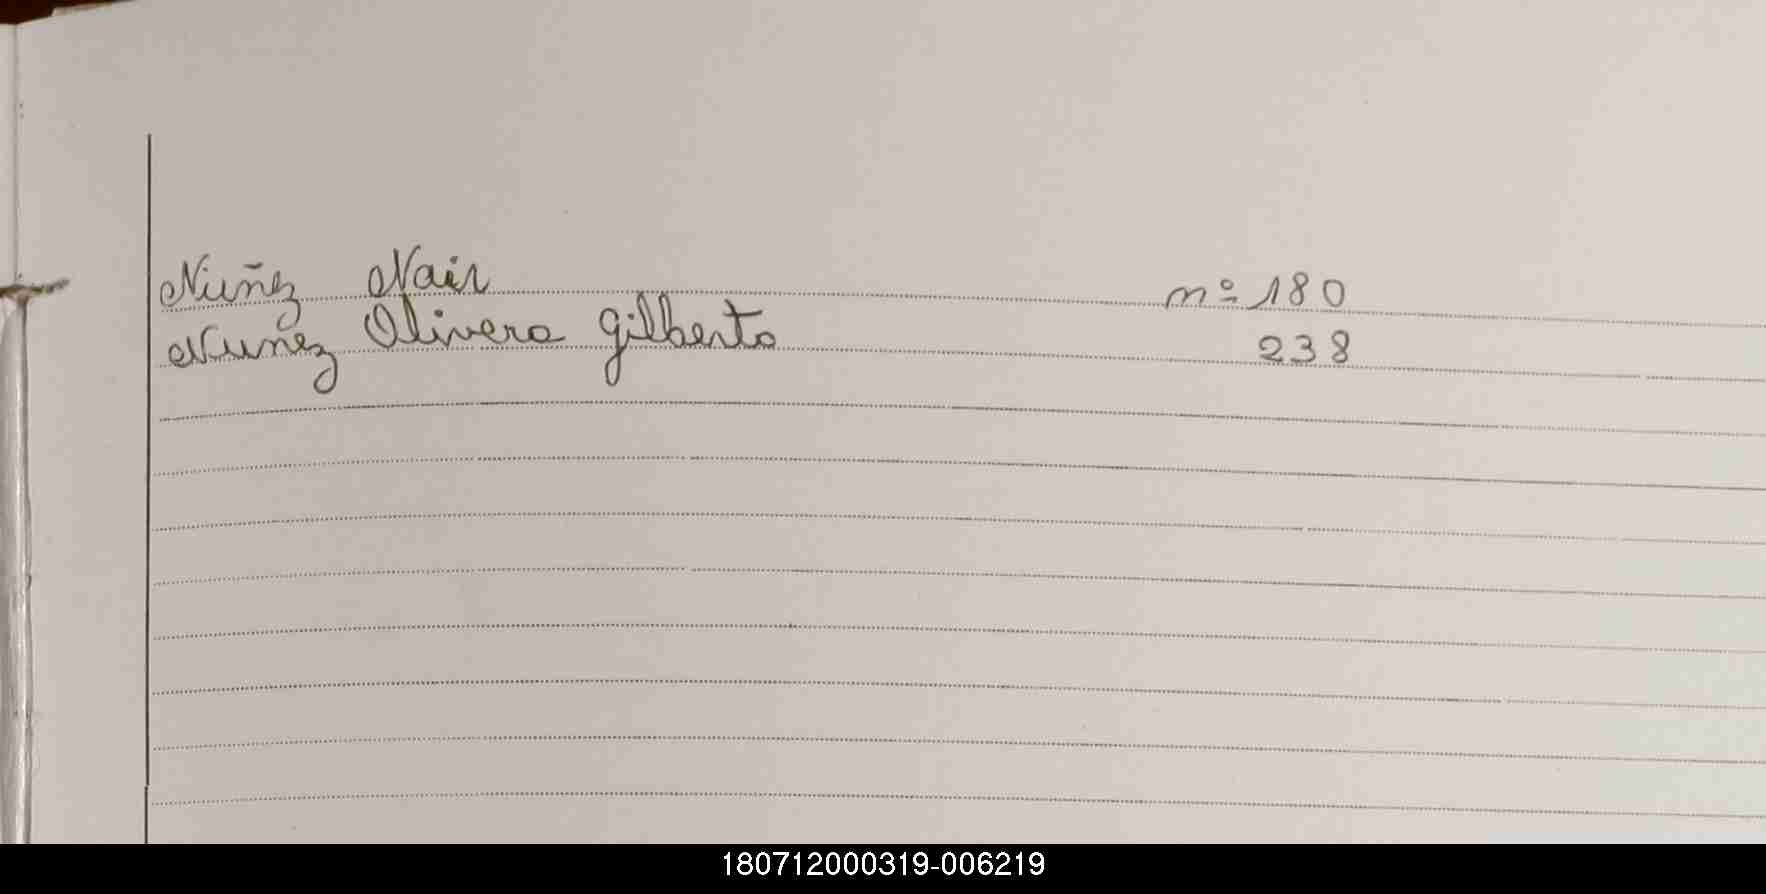 Nuñez Nair nº 180
Nuñez Olivera Gilberto 238
180712000319-006219